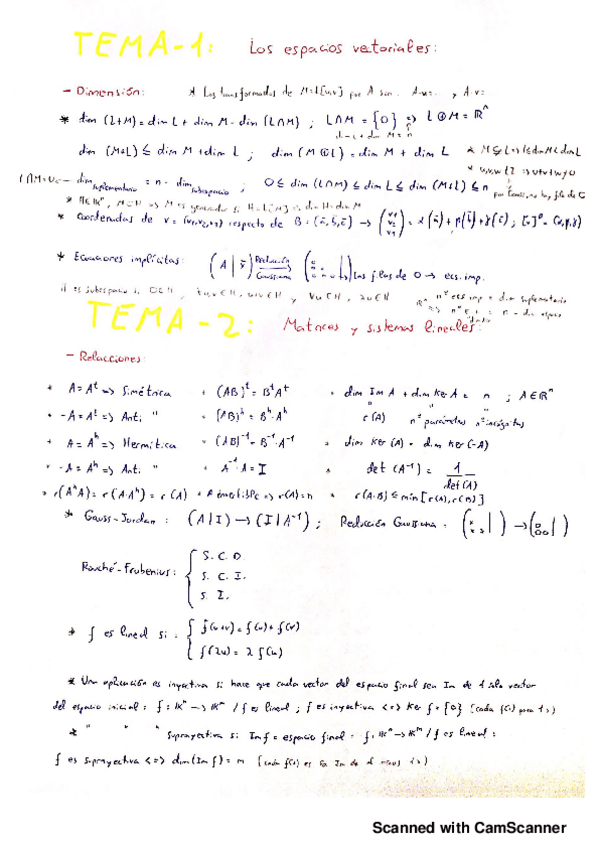 TEMA-1: Los espacios vectoriales:
- Dimensión: * Los transformados de M=L{u,v} por A son: A·u= y A·v=
* dim (L+M) = dim L + dim M - dim (L∩M) ; L∩M = {0} => L⊕M = ℝⁿ
dim L + dim M = n
dim (M+L) ≤ dim M + dim L ; dim (M⊕L) = dim M + dim L
dim suplementario = n - dim subespacio ; 0 ≤ dim (L∩M) ≤ dim L ≤ dim (M+L) ≤ n
* Coordenadas de v = (v₁,v₂,v₃) respecto de B = {ā,b̄,c̄} → (v₁ v₂ v₃) = α(ā) + β(b̄) + γ(c̄) ; [v]ᴮ = (α,β,γ)
* Ecuaciones implícitas: (A | x̄) Reducción Gaussiana → Las filas de 0 → ecs. imp.
nº ecs imp = dim suplementario
TEMA-2: Matrices y sistemas lineales:
- Relaciones:
* A = Aᵗ => Simétrica * (AB)ᵗ = BᵗAᵗ * dim Im A + dim Ker A = n ; A∈ℝⁿ
* -A = Aᵗ => Anti " * (AB)ʰ = Bʰ·Aʰ r(A) nº parámetros nº incógnitas
* A = Aʰ => Hermítica * (AB)⁻¹ = B⁻¹·A⁻¹ * dim Ker (A) = dim Ker (-A)
* -A = Aʰ => Anti " * A⁻¹·A = I * det (A⁻¹) = 1/det(A)
* r(AʰA) = r(A·Aʰ) = r(A) * A invertible => r(A) = n * r(A·B) ≤ min [r(A), r(B)]
* Gauss-Jordan: (A | I) → (I | A⁻¹) ; Reducción Gaussiana:
Rouché-Frobenius: { S. C. D.
S. C. I.
S. I.
* f es lineal si: { f(u+v) = f(u) + f(v)
f(λu) = λ f(u)
* Una aplicación es inyectiva si hace que cada vector del espacio final sea Im de 1 solo vector
del espacio inicial: f: 𝕂ⁿ → 𝕂ᵐ / f es lineal ; f es inyectiva <=> Ker f = {0} (cada f(x) para 1 x)
* " " " suprayectiva si Im f = espacio final: f: 𝕂ⁿ → 𝕂ᵐ / f es lineal:
f es suprayectiva <=> dim (Im f) = m
Scanned with CamScanner